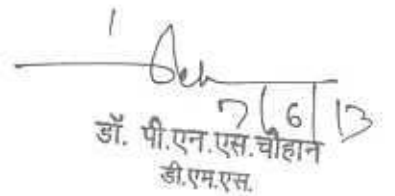 7/6/13
डॉ. पी.एन.एस.चौहान
डी.एम.एस.